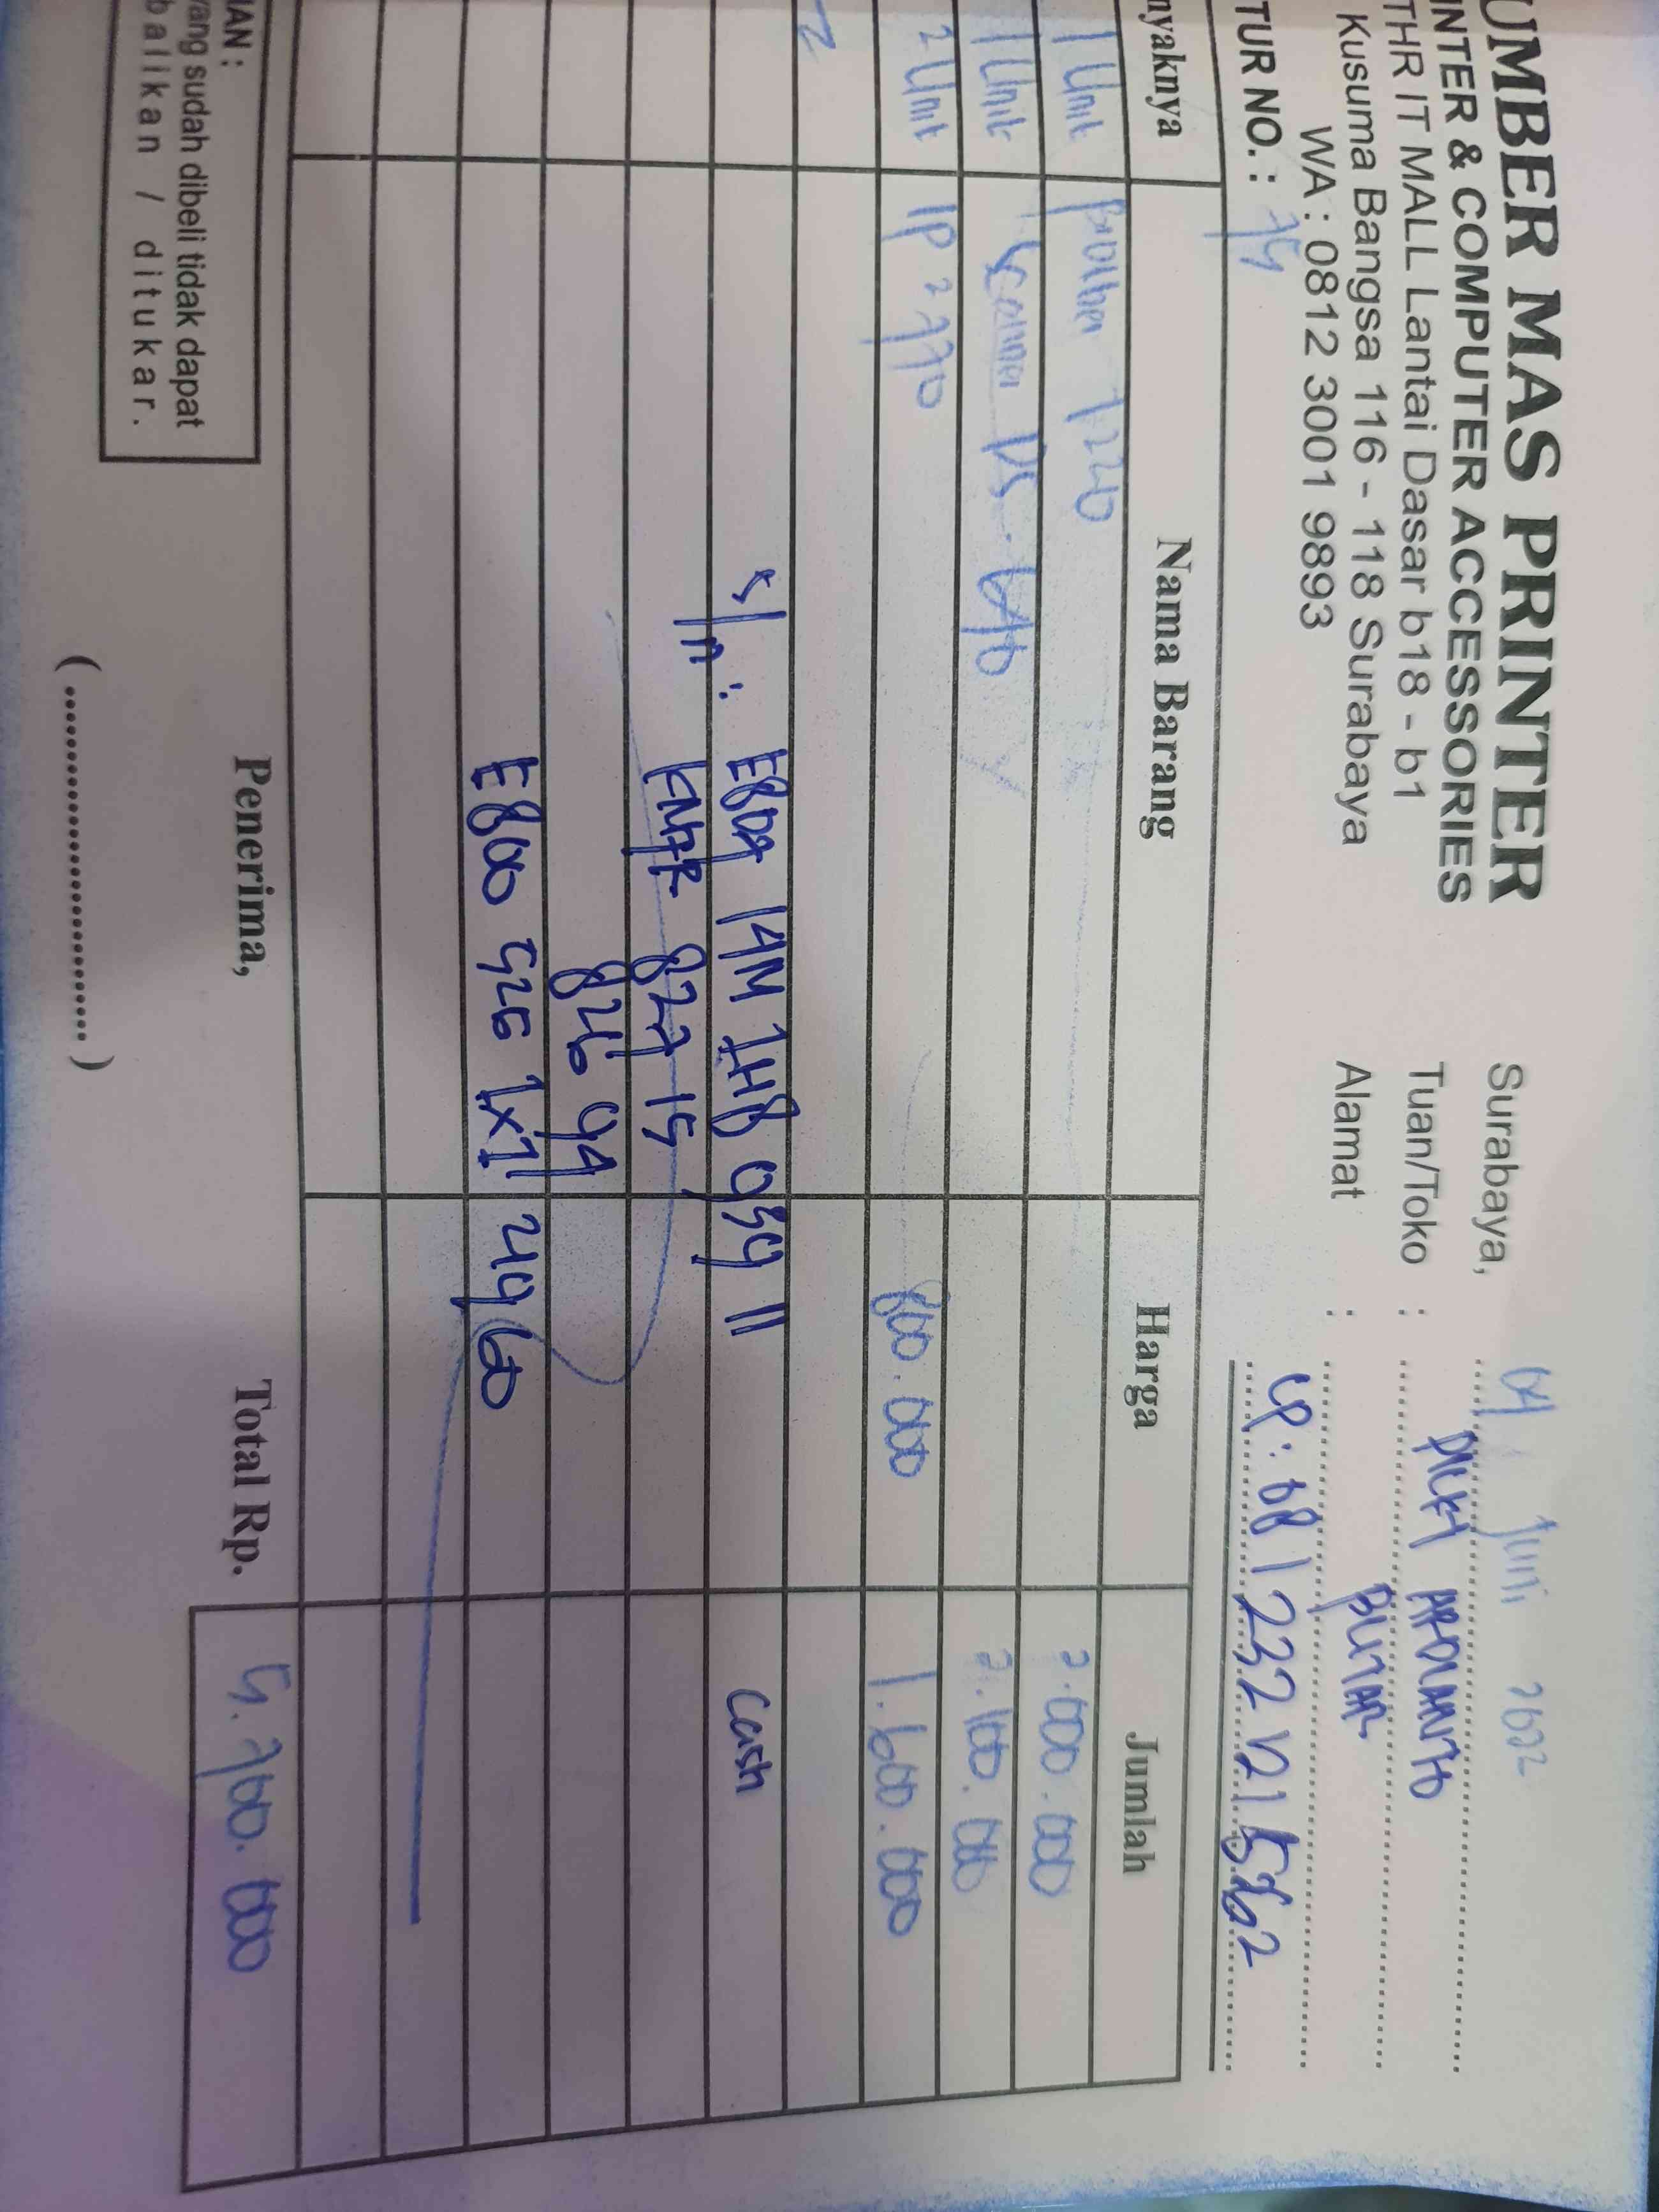 UMBER MAS PRINTER
INTER & COMPUTER ACCESSORIES
THR IT MALL Lantai Dasar b18 - b1
Kusuma Bangsa 116 - 118 Surabaya
WA : 0812 3001 9893
Surabaya, 04 Juni 2022
Tuan/Toko :
Alamat : BLITAR
CP : 081 232 121 5562
TUR NO. :
nyaknya Nama Barang Harga Jumlah
1 Unit Brother 7220 2.000.000
1 Unit Scanner DS. 640 2.100.000
2 Unit IP 2770 800.000 1.600.000
s/n : E80A 14M 1H8 939 11 Cash
KNAR 827 15
826 94
E800 526 1x1 24960
Total Rp. 5.700.000
Penerima,
(........................)
IAN :
yang sudah dibeli tidak dapat
balikan / ditukar.